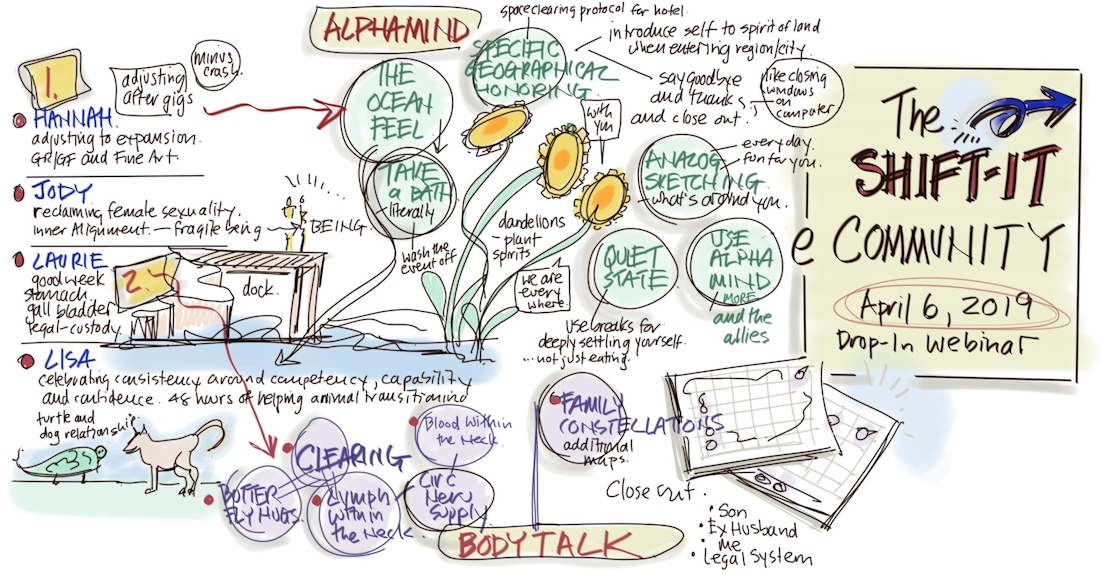 ALPHAMIND
space clearing protocol for hotel.
introduce self to spirit of land
when entering region/city.
SPECIFIC
GEOGRAPHICAL
HONORING.
say goodbye
and thanks
and close out.
like closing
windows
on
computer
1.
adjusting
after gigs
minus
crash.
HANNAH.
adjusting to expansion.
GR/GF and Fine Art.
THE
OCEAN
FEEL
TAKE
a BATH
literally
wash the
event off
with
you
ANALOG
SKETCHING
everyday.
fun for you.
what's around you.
JODY
reclaiming female sexuality.
inner Alignment. — fragile being
BEING
LAURIE
good week
stomach
gall bladder
legal-custody
2.
dock.
dandelions
- plant
spirits
we are
every
where.
QUIET
STATE
USE
ALPHA
MIND
MORE
and the
allies
use breaks for
deeply settling yourself.
...not just eating.
The
SHIFT-IT
e COMMUNITY
April 6, 2019
Drop-In Webinar
LISA
celebrating consistency around competency, capability
and confidence. 48 hours of helping animal transitioning
turtle and
dog relationship
BUTTER
FLY HUGS.
CLEARING
Lymph
within
the Neck
Blood within
the Neck
Circ
Nerv
Supply
BODYTALK
FAMILY
CONSTELLATIONS
additional
maps.
Close out.
• Son
• Ex Husband
• me
• Legal System